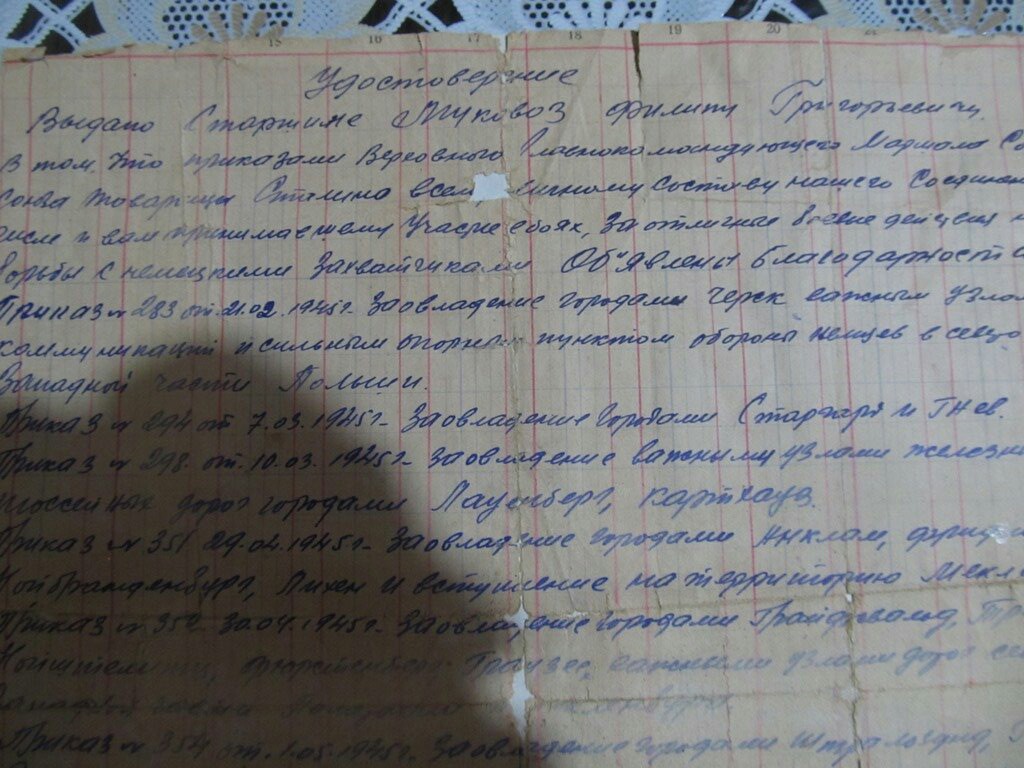 15 16 17 18 19 20
Удостоверение
Выдано Старшине Муковоз Филипу Григорьевичу
В том, что приказами Верховного Главнокомандующего Маршала Со
Союза товарища Сталина всем личному составу нашего Соединен
числе и вам принимавшему участие в боях, за отличные боевые
борьбы с немецкими захватчиками Объявлены благодарности
Приказ № 283 от 21.02.1945г. За овладение городами Черск важным узлом
коммуникаций и сильным опорным пунктом обороны немцев в северо
Западной части Польши.
Приказ № 294 от 7.03.1945г- За овладение городами Старгард и Гнев.
Приказ № 298. от 10.03.1945г- за овладение важными узлами железн
шоссейных дорог городами Лауенберг, Картхауз.
Приказ № 351 29.04.1945г- За овладение городами Анклам,
Нойбранденбург, Лихен и вступление на территорию Мекле
Приказ № 352 30.04.1945г- За овладение городами Грайфсвальд, Тр
важными узлами дорог
Приказ № 354 от 1.05.1945г. За овладение городами Штральзунд,